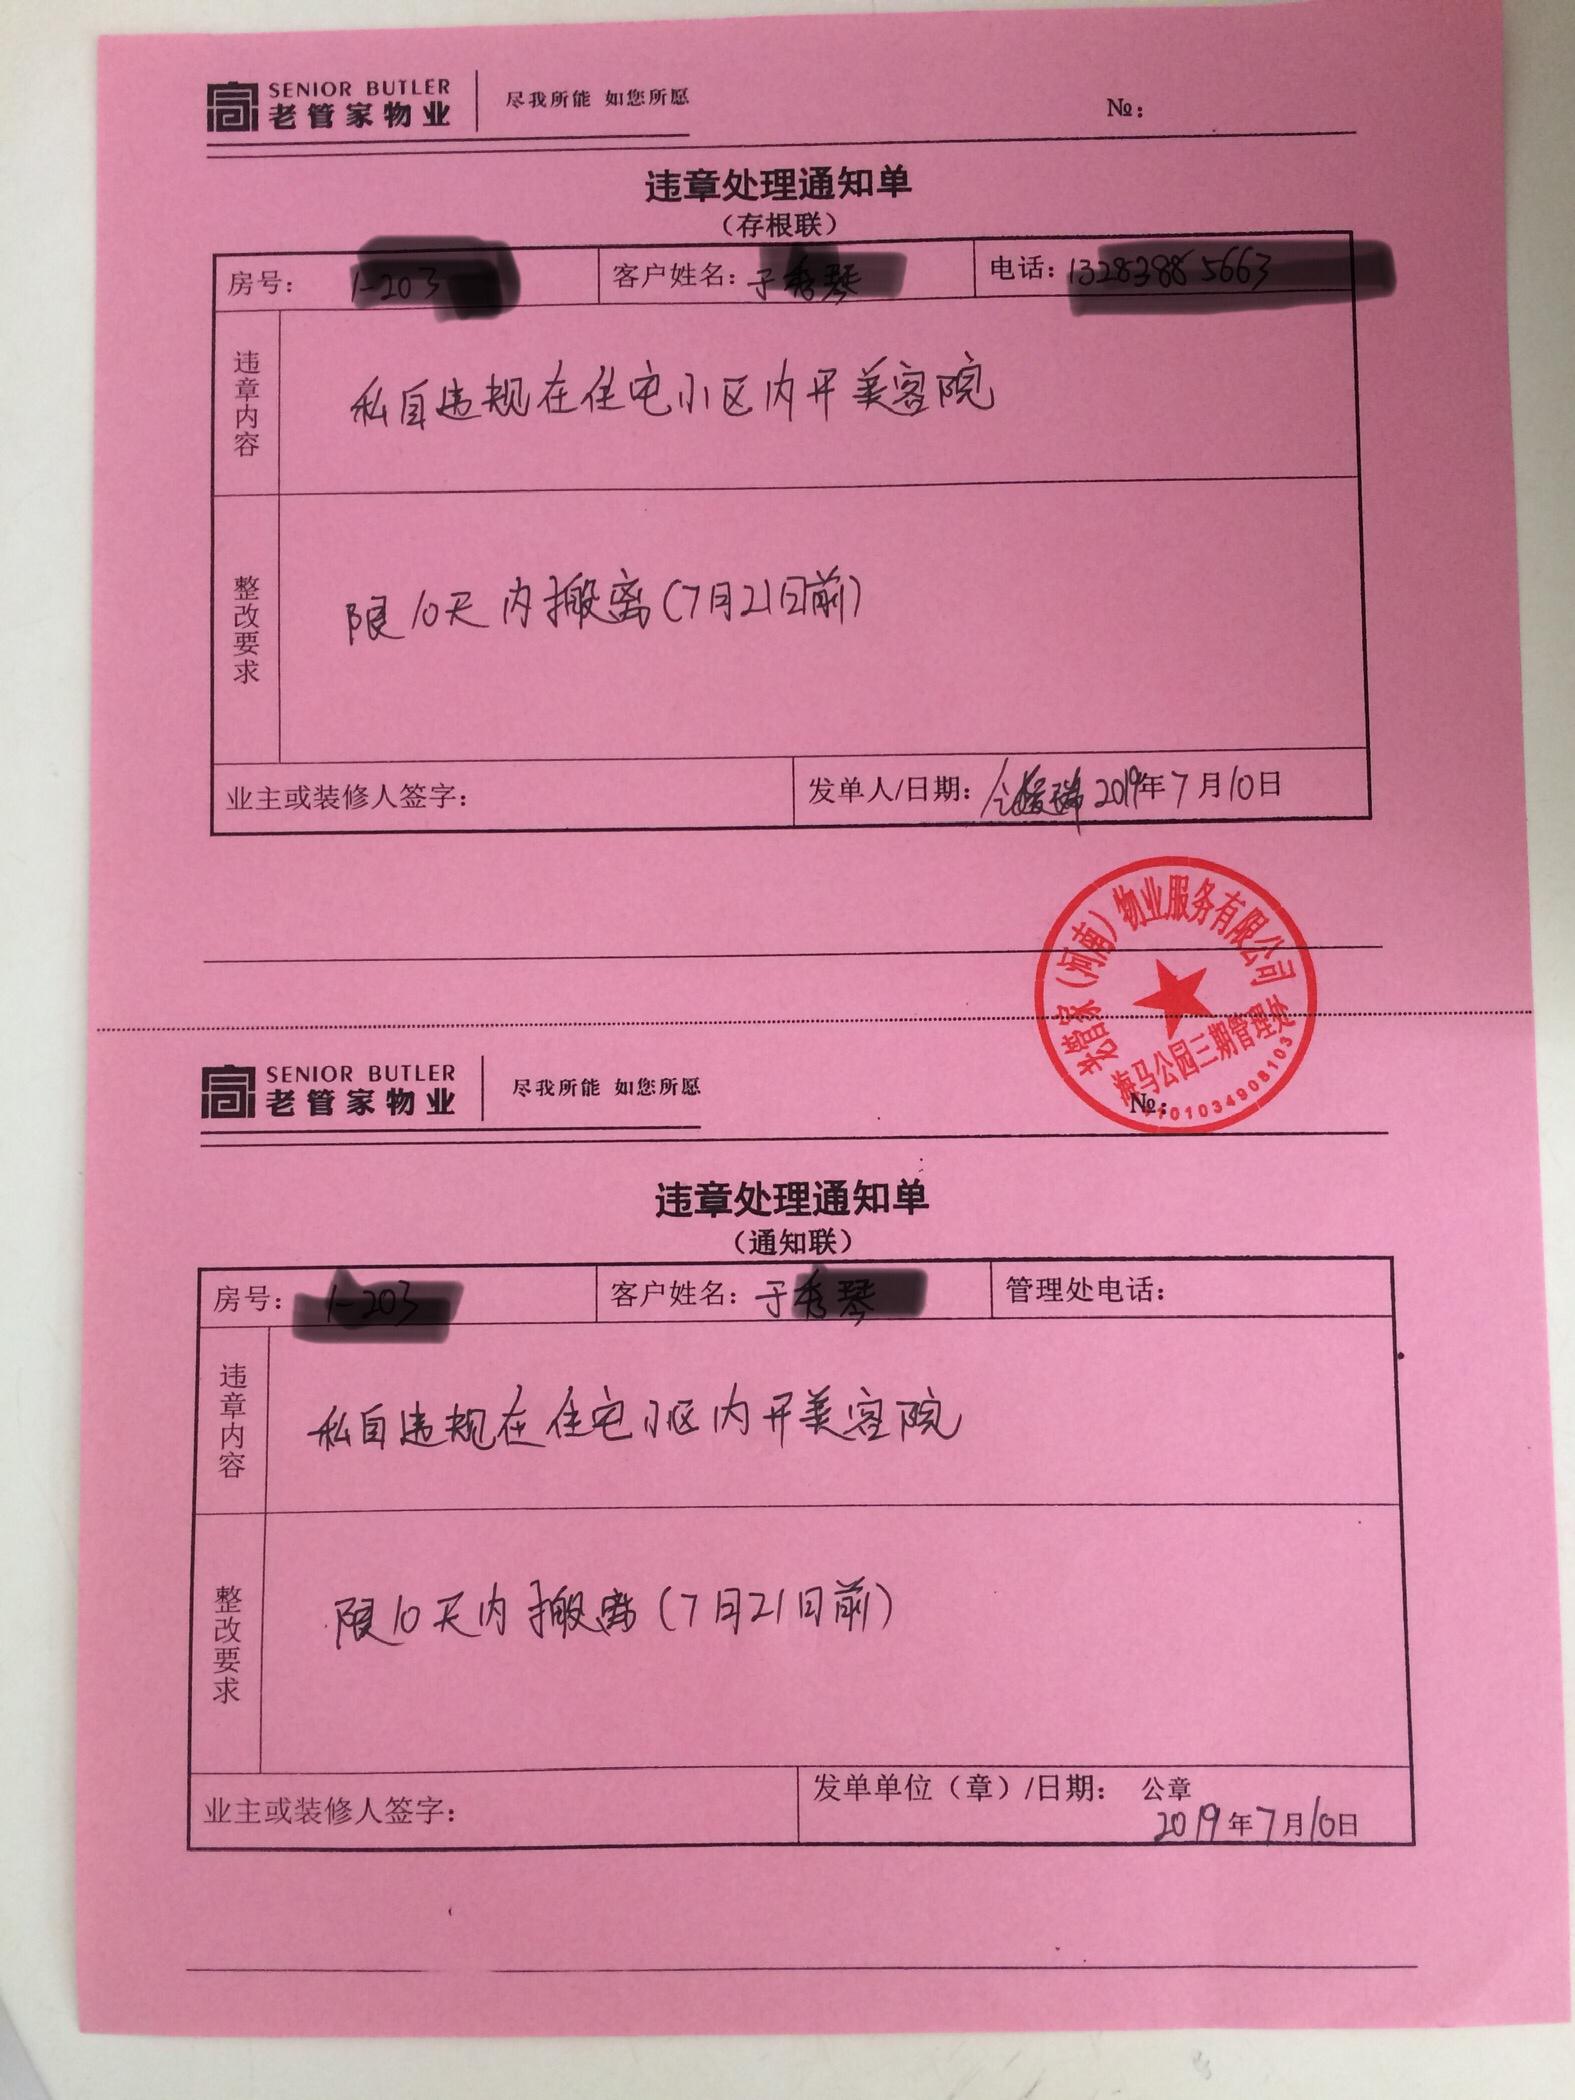 SENIOR BUTLER
老管家物业
尽我所能 如您所愿
№:
违章处理通知单
(存根联)
房号:
客户姓名:
电话:
违章内容
私自违规在住宅小区内开美容院
整改要求
限10天内搬离(7月21日前)
业主或装修人签字:
发单人/日期: 2019年7月10日
老管家(河南)物业服务有限公司
海马公园三期管理处
SENIOR BUTLER
老管家物业
尽我所能 如您所愿
№:
违章处理通知单
(通知联)
房号:
客户姓名:
管理处电话:
违章内容
私自违规在住宅小区内开美容院
整改要求
限10天内搬离(7月21日前)
业主或装修人签字:
发单单位(章)/日期: 公章
2019年7月10日